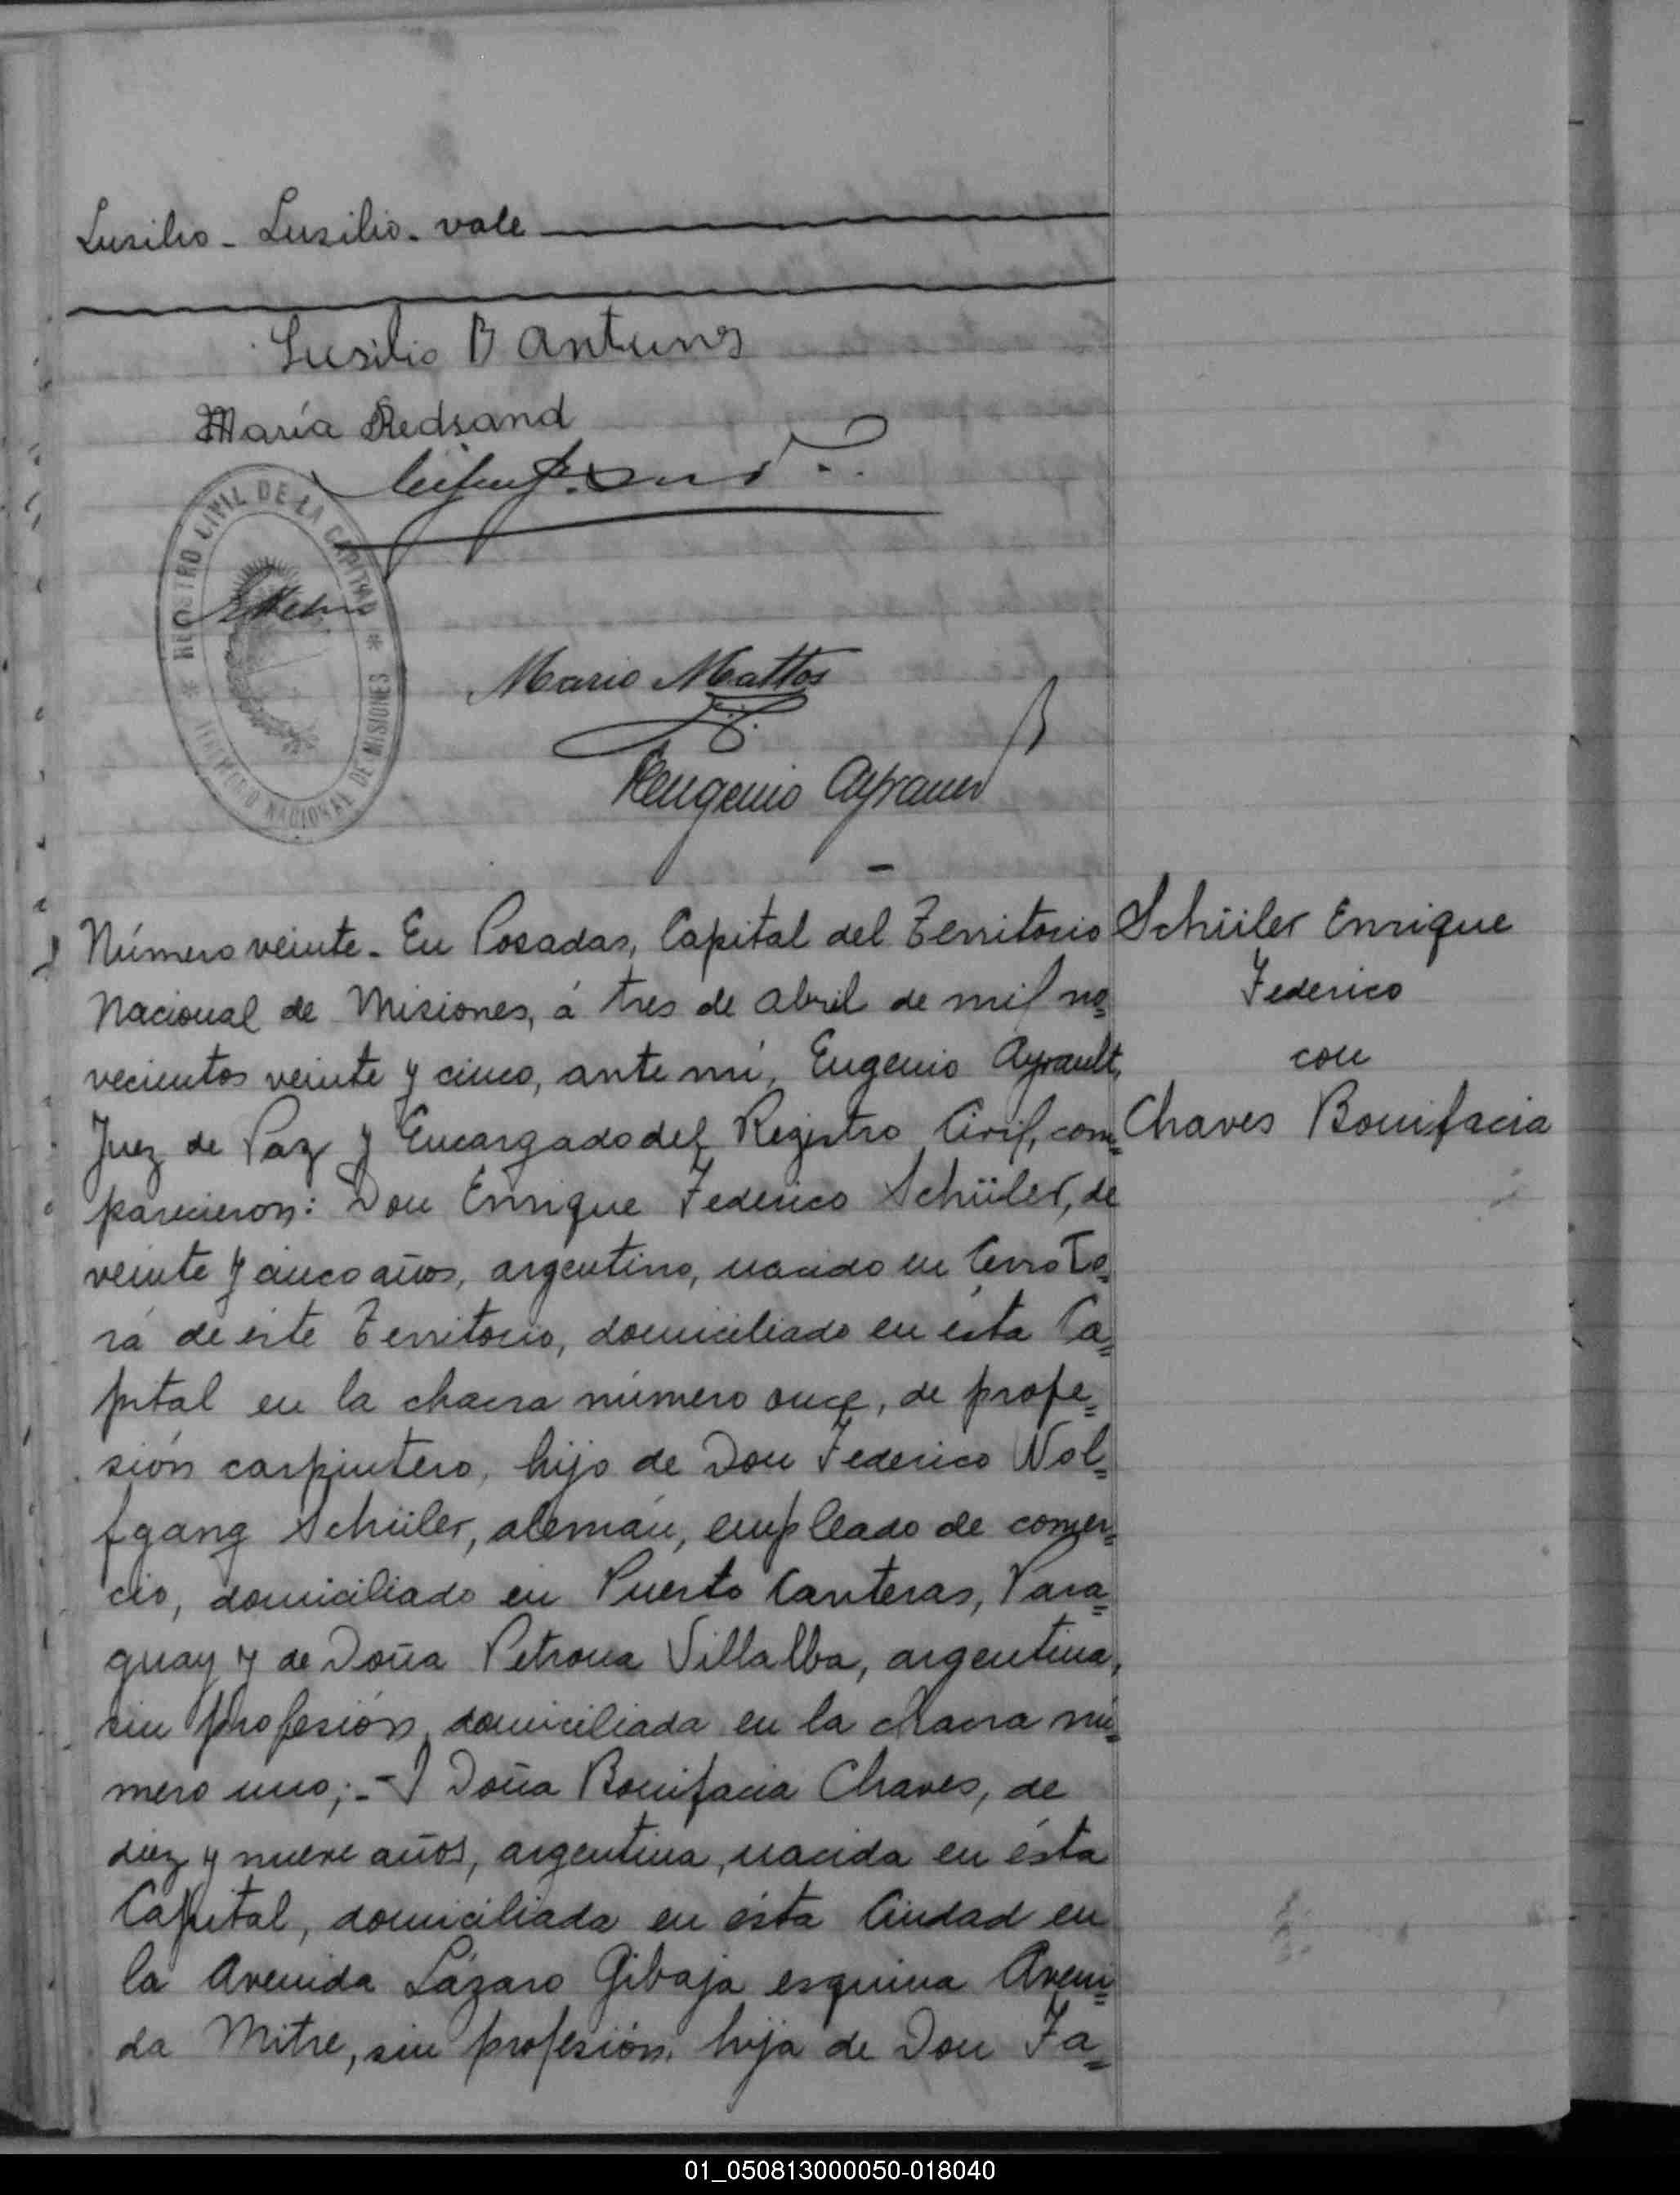 Lusilio - Lusilio - vale
Lusilio B Antunes
María Redsand
REGISTRO CIVIL DE LA CAPITAL
TERRITORIO NACIONAL DE MISIONES
Mario Mattos
Eugenio Ayrault
Número veinte - En Posadas, Capital del Territorio
Nacional de Misiones, á tres de abril de mil no=
vecientos veinte y cinco, ante mí, Eugenio Ayrault,
Juez de Paz y Encargado del Registro Civil, com=
parecieron: Don Enrique Federico Schüler, de
veinte y cinco años, argentino, nacido en Cerro Co=
rá de este Territorio, domiciliado en ésta Ca=
pital en la chacra número once, de profe=
sión carpintero, hijo de Don Federico Wol=
fgang Schüler, alemán, empleado de comer=
cio, domiciliado en Puerto Canteras, Para=
guay y de Doña Petrona Villalba, argentina,
sin profesión, domiciliada en la chacra nú=
mero uno; - Y Doña Bonifacia Chaves, de
diez y nueve años, argentina, nacida en ésta
Capital, domiciliada en ésta Ciudad en
la Avenida Lázaro Gibaja esquina Aveni=
da Mitre, sin profesión, hija de Don Fa=
Schüler Enrique
Federico
con
Chaves Bonifacia
01_050813000050-018040